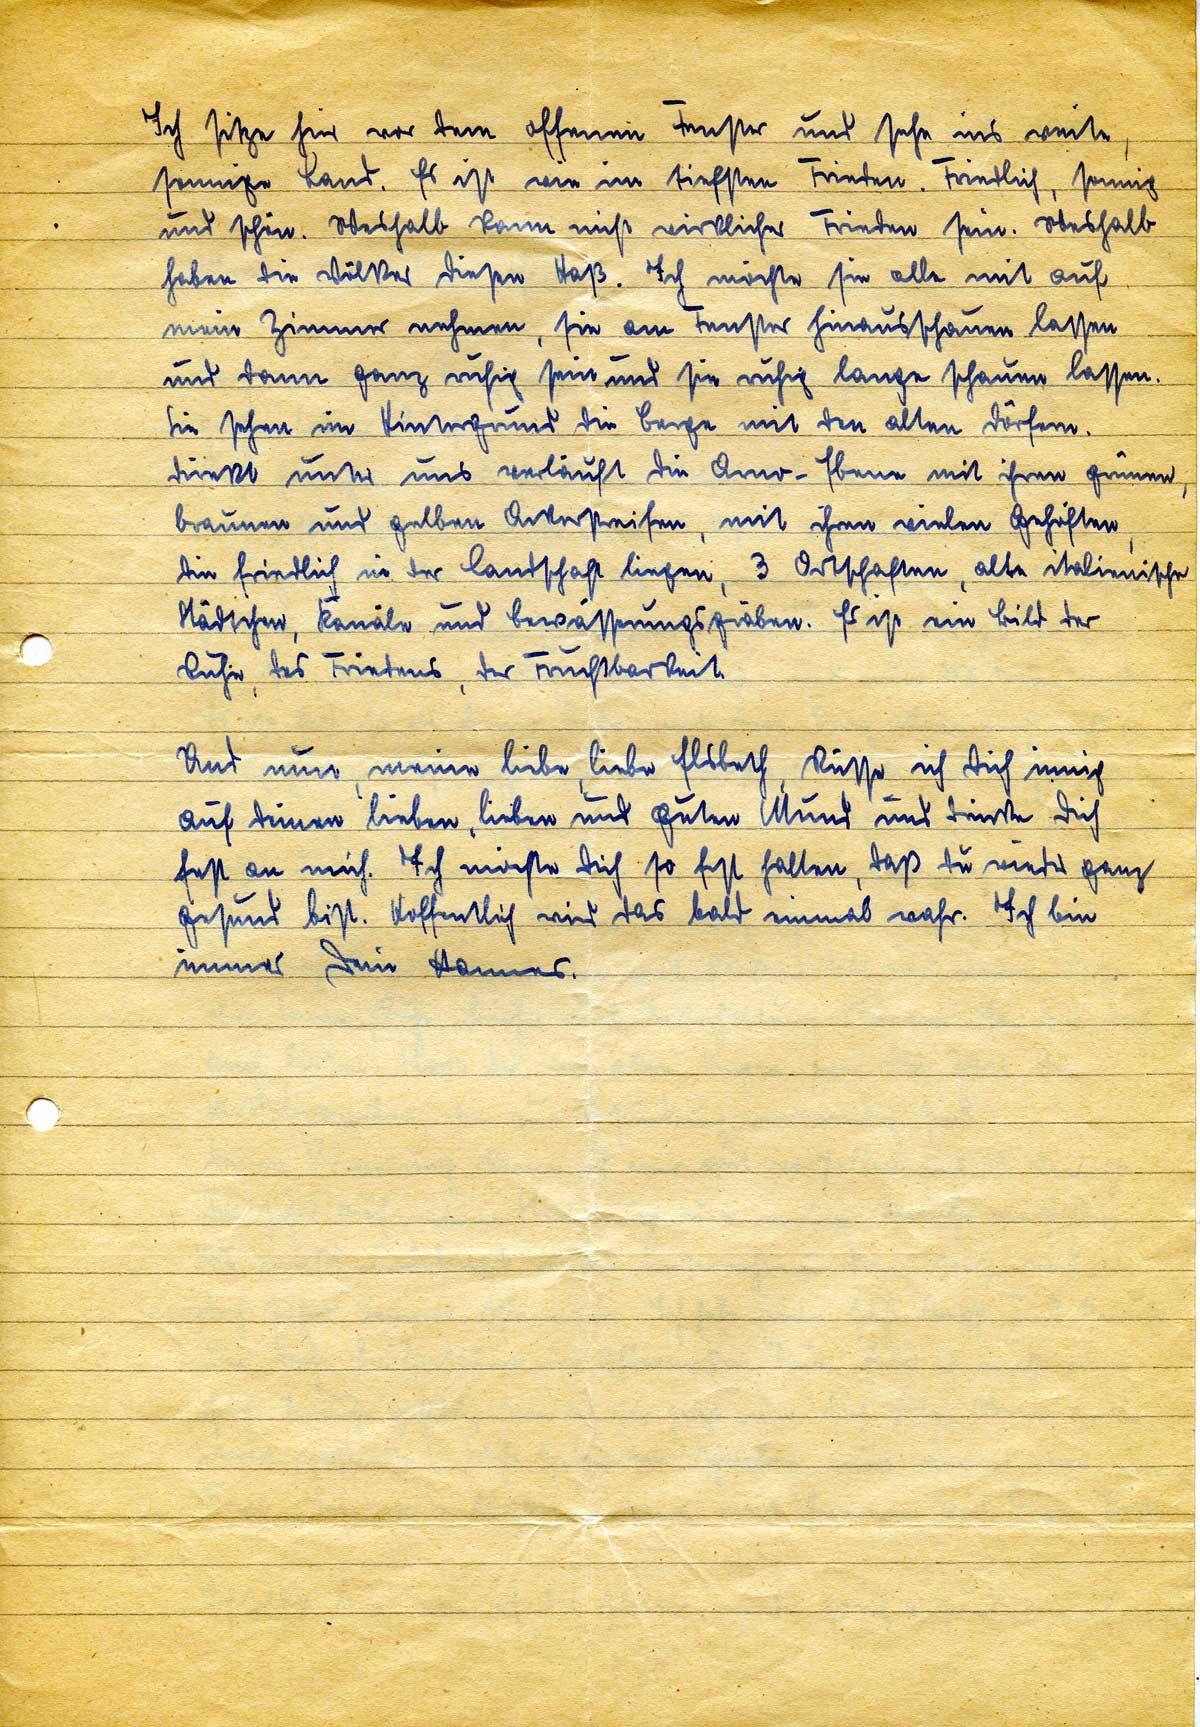 Ich sitze hier vor dem offenen Fenster und sehe ins weite,
sonnige Land. Es ist wie im tiefsten Frieden. Friedlich, sonnig
und schön. Weshalb kann nicht wirklicher Frieden sein. Weshalb
haben die Völker diesen Haß. Ich möchte sie alle mit auf
mein Zimmer nehmen, sie am Fenster hinausschauen lassen
und dann ganz ruhig sein und sie ruhig lange schauen lassen.
Sie sehen im Hintergrund die Berge mit den alten Dörfern.
Direkt unter uns verläuft die Arno-Ebene mit ihren grünen,
braunen und gelben Ackerstreifen, mit ihren vielen Gehöften,
die friedlich in der Landschaft liegen, 3 Ortschaften, alte italienische
Städtchen, Kanäle und Bewässerungsgräben. Es ist ein Bild der
Ruhe, des Friedens, der Fruchtbarkeit.
Und nun, meine liebe, liebe Elsbeth, küsse ich Dich innig
auf deinen lieben, lieben und guten Mund und drücke Dich
fest an mich. Ich möchte Dich so fest halten, daß du wieder ganz
gesund bist. Hoffentlich wird das bald einmal wahr. Ich bin
immer Dein Hannes.